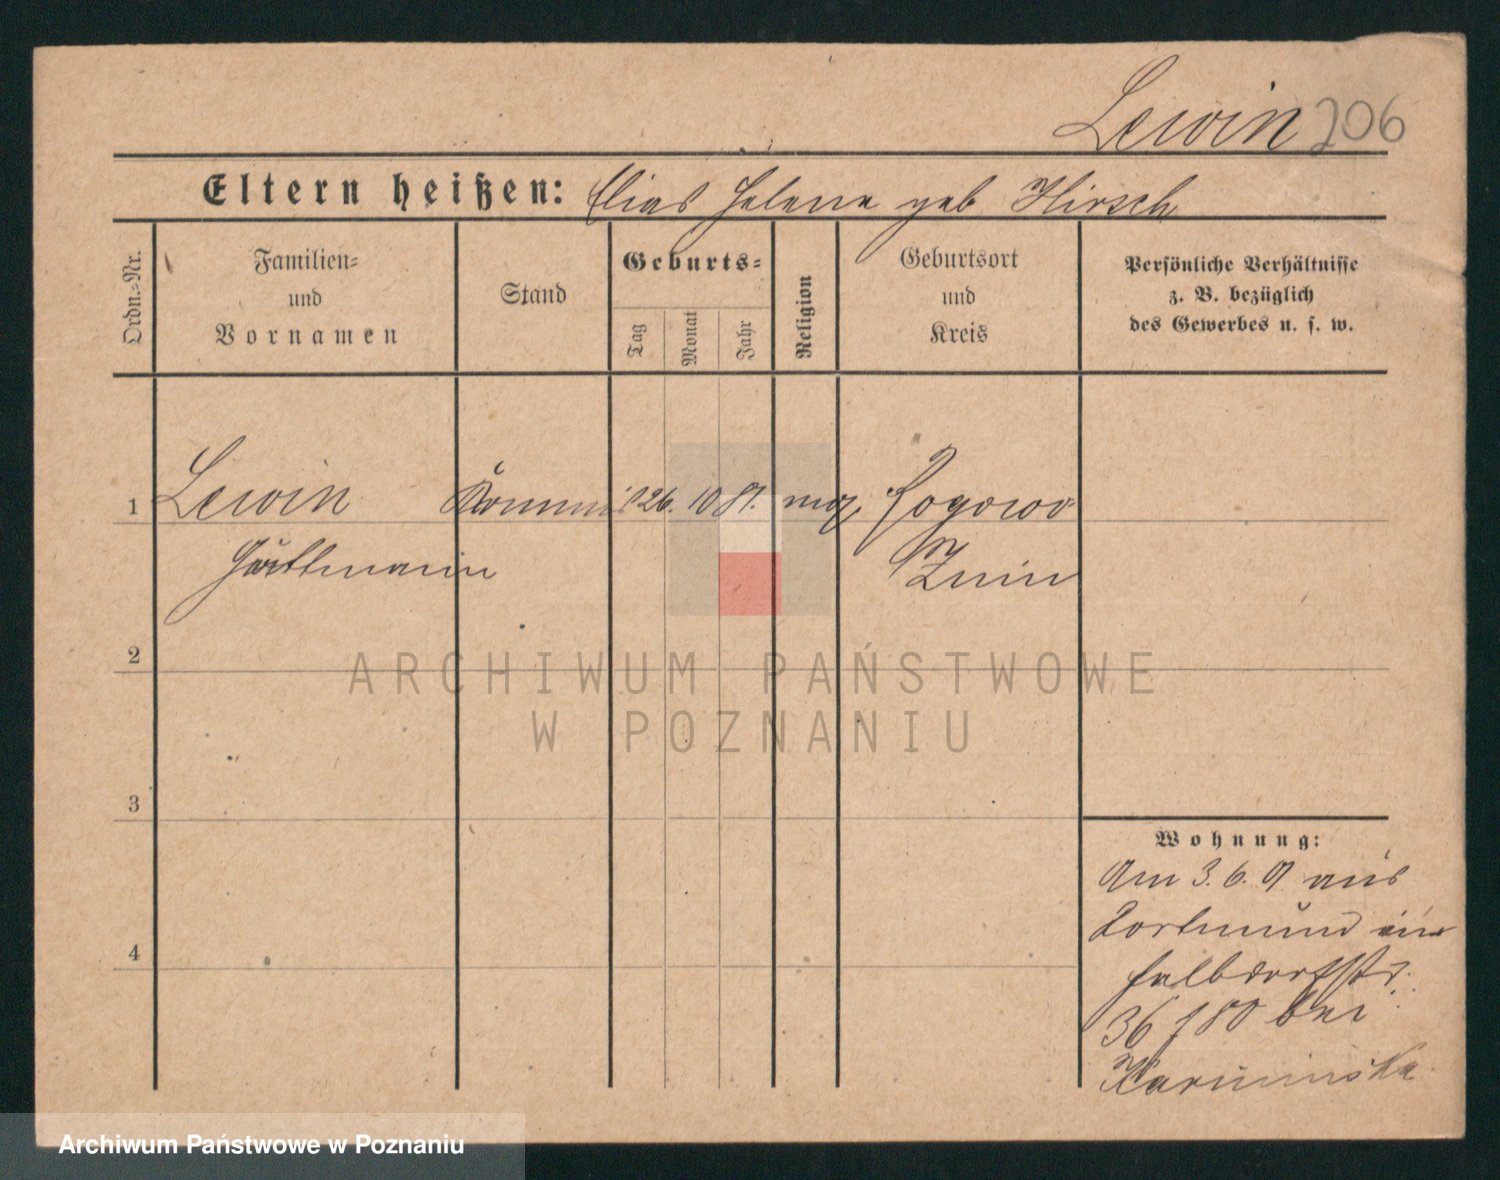 Lewin 206
Eltern heißen: Elias Helene geb Hirsch
Ordn.-Nr.
Familien-
und
Vornamen
Stand
Geburts-
Tag
Monat
Jahr
Religion
Geburtsort
und
Kreis
Persönliche Verhältnisse
z. B. bezüglich
des Gewerbes u. s. w.
1 Lewin Kommis 26. 10 81. mos. Rogowo
Guttmann Znin
2
3
4
ARCHIWUM PAŃSTWOWE
W POZNANIU
Wohnung:
Am 3. 6. 01 aus
Dortmund in
Halbdorfstr.
36 bei
Archiwum Państwowe w Poznaniu